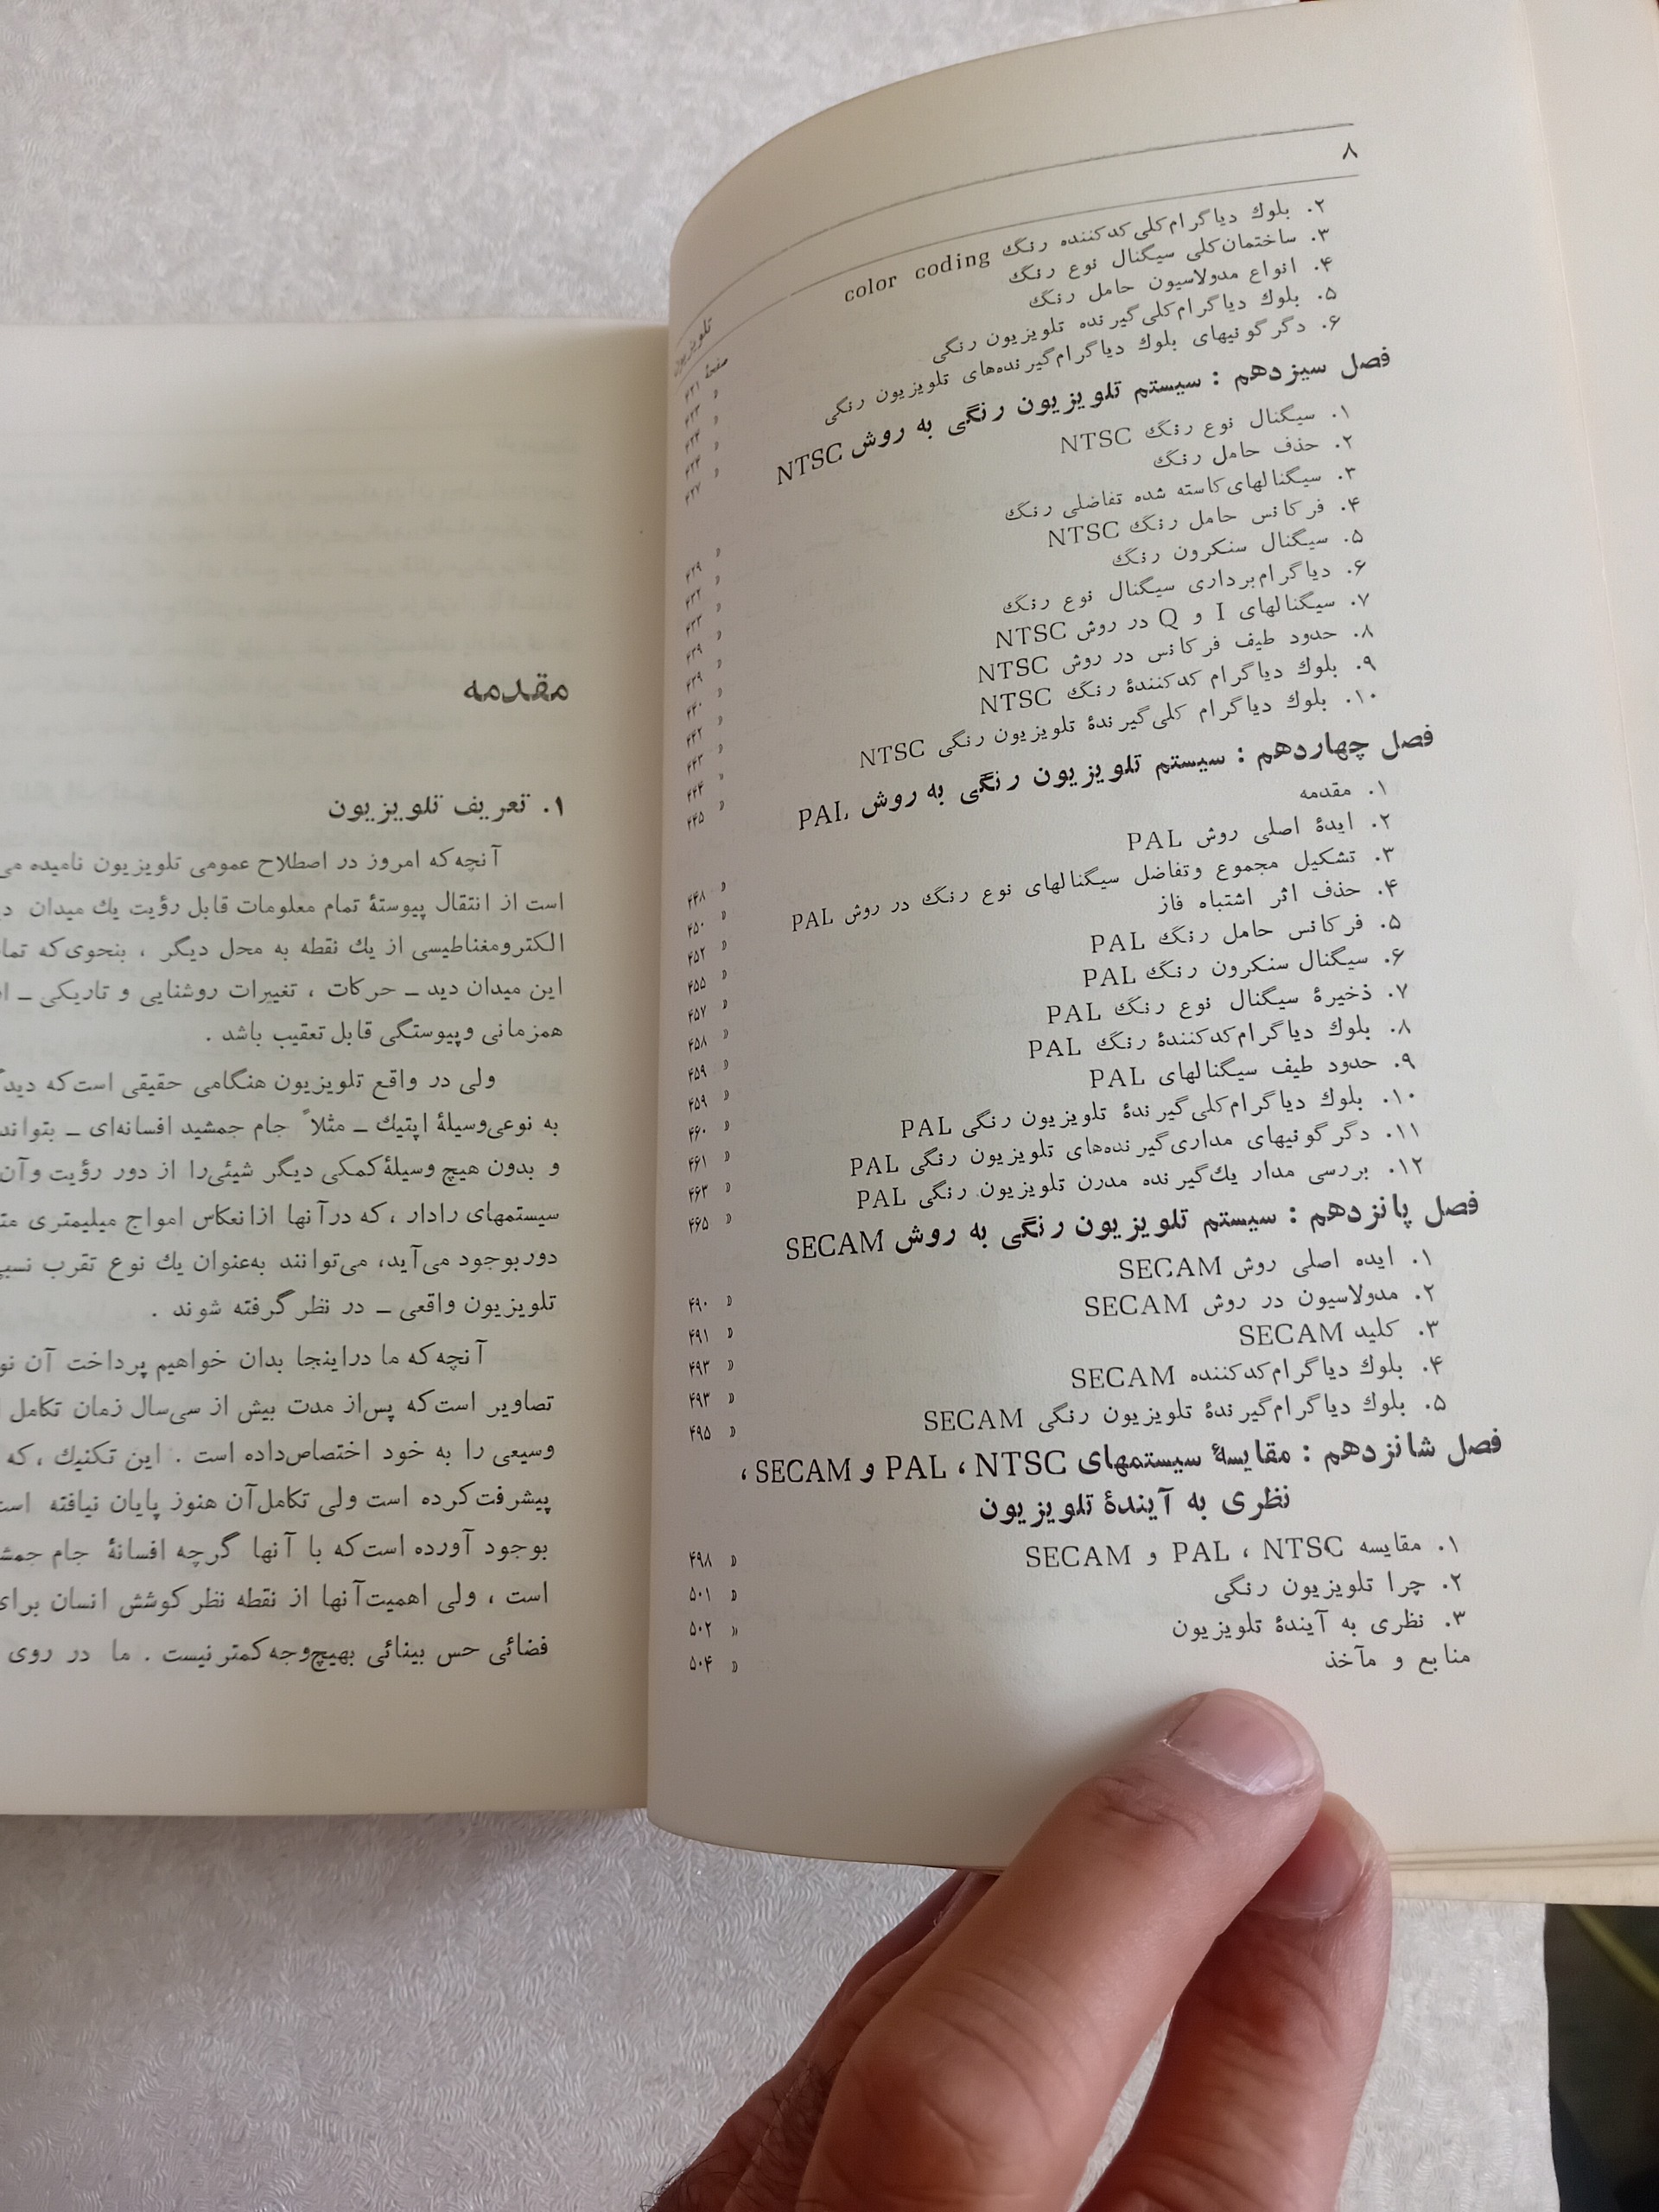 ۸
تلویزیون
صفحهٔ
۲. بلوك دیاگرام‌کلی‌کدکننده رنگ color coding ۴۲۱
۳. ساختمان‌کلی سیگنال نوع رنگ ۴۲۳ »
۴. انواع مدولاسیون حامل رنگ »
۵. بلوك دیاگرام‌کلی‌گیرنده تلویزیون رنگی »
۶. دگرگونیهای بلوك دیاگرام‌گیرنده‌های تلویزیون رنگی ۴۲۷ »
فصل سیزدهم : سیستم تلویزیون رنگی به روش NTSC
۱. سیگنال نوع رنگ NTSC ۴۲۹ »
۲. حذف حامل رنگ ۴۳۲ »
۳. سیگنالهای‌کاسته شده تفاضلی رنگ ۴۳۳ »
۴. فرکانس حامل رنگ NTSC ۴۳۹ »
۵. سیگنال سنکرون رنگ ۴۳۹ »
۶. دیاگرام‌برداری سیگنال نوع رنگ ۴۴۰ »
۷. سیگنالهای I و Q در روش NTSC ۴۴۲ »
۸. حدود طیف فرکانس در روش NTSC ۴۴۳ »
۹. بلوك دیاگرام کدکنندهٔ رنگ NTSC ۴۴۴ »
۱۰. بلوك دیاگرام کلی‌گیرندهٔ تلویزیون رنگی NTSC ۴۴۵ »
فصل چهاردهم : سیستم تلویزیون رنگی به روش PAL
۱. مقدمه ۴۴۸ »
۲. ایدهٔ اصلی روش PAL ۴۵۰ »
۳. تشکیل مجموع وتفاضل سیگنالهای نوع رنگ در روش PAL ۴۵۲ »
۴. حذف اثر اشتباه فاز ۴۵۵ »
۵. فرکانس حامل رنگ PAL ۴۵۷ »
۶. سیگنال سنکرون رنگ PAL ۴۵۸ »
۷. ذخیرهٔ سیگنال نوع رنگ PAL ۴۵۹ »
۸. بلوك دیاگرام‌کدکنندهٔ رنگ PAL ۴۵۹ »
۹. حدود طیف سیگنالهای PAL ۴۶۰ »
۱۰. بلوك دیاگرام‌کلی‌گیرندهٔ تلویزیون رنگی PAL ۴۶۱ »
۱۱. دگرگونیهای مداری‌گیرنده‌های تلویزیون رنگی PAL ۴۶۳ »
۱۲. بررسی مدار یك‌گیرنده مدرن تلویزیون رنگی PAL ۴۶۵ »
فصل پانزدهم : سیستم تلویزیون رنگی به روش SECAM
۱. ایده اصلی روش SECAM ۴۹۰ »
۲. مدولاسیون در روش SECAM ۴۹۱ »
۳. کلید SECAM ۴۹۳ »
۴. بلوك دیاگرام‌کدکننده SECAM ۴۹۳ »
۵. بلوك دیاگرام‌گیرندهٔ تلویزیون رنگی SECAM ۴۹۵ »
فصل شانزدهم : مقایسهٔ سیستمهای PAL ، NTSC و SECAM ،
نظری به آیندهٔ تلویزیون
۱. مقایسه PAL ، NTSC و SECAM ۴۹۸ »
۲. چرا تلویزیون رنگی ۵۰۱ »
۳. نظری به آیندهٔ تلویزیون ۵۰۲ »
منابع و مآخذ ۵۰۴ »
مقدمه
۱. تعریف تلویزیون
آنچه‌که امروز در اصطلاح عمومی تلویزیون نامیده
است از انتقال پیوستهٔ تمام معلومات قابل رؤیت یك میدان
الکترومغناطیسی از یك نقطه به محل دیگر ، بنحوی‌که
این میدان دید ــ حرکات ، تغییرات روشنایی و تاریکی ــ
همزمانی وپیوستگی قابل تعقیب باشد .
ولی در واقع تلویزیون هنگامی حقیقی است‌که
به نوعی‌وسیلهٔ اپتیك ــ مثلاً جام جمشید افسانه‌ای ــ بتواند
و بدون هیچ وسیلهٔ‌کمکی دیگر شیئی‌را از دور رؤیت وآن
سیستمهای رادار ، که درآنها ازانعکاس امواج میلیمتری
دوربوجود می‌آید، می‌توانند به‌عنوان یك نوع تقرب
تلویزیون واقعی ــ در نظرگرفته شوند .
آنچه‌که ما دراینجا بدان خواهیم پرداخت آن
تصاویر است‌که پس‌از مدت بیش از سی‌سال زمان تکامل
وسیعی را به خود اختصاص‌داده است . این تکنیك ، که
پیشرفت‌کرده است ولی تکامل‌آن هنوز پایان نیافته
بوجود آورده است‌که با آنها گرچه افسانهٔ جام
است ، ولی اهمیت‌آنها از نقطه نظرکوشش انسان
فضائی حس بینائی بهیچ‌وجه‌کمترنیست . ما در روی